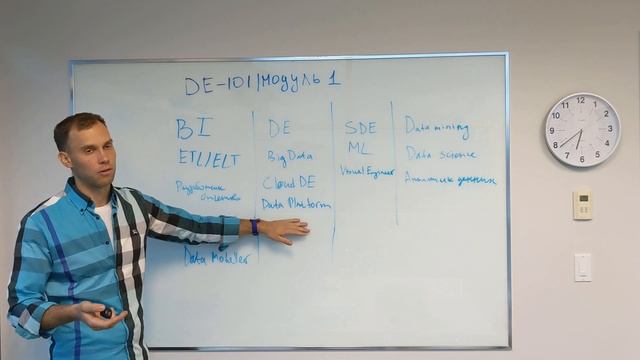 DE-101/модуль 1
BI
ETL/ELT
Разработчик
отчетов
Data Modeller
DE
Big Data
Cloud DE
Data Platform
SDE
ML
Visual Engineer
Data mining
Data science
Аналитик данных
12
1
2
3
4
5
6
7
8
9
10
11